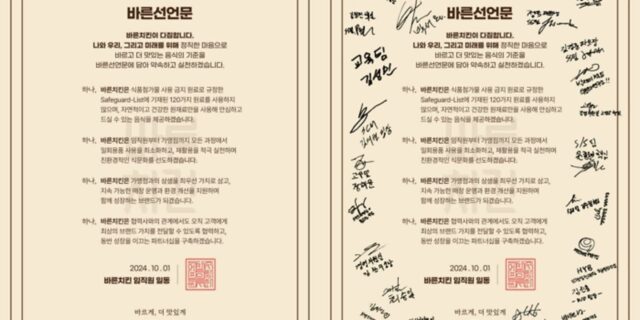 바른선언문
바른치킨이 다짐합니다.
나와 우리, 그리고 미래를 위해 정직한 마음으로
바르고 더 맛있는 음식의 기준을
바른선언문에 담아 약속하고 실천하겠습니다.
하나, 바른치킨은 식품첨가물 사용 금지 원료로 규정한
Safeguard-List에 기재된 120가지 원료를 사용하지
않으며, 자연적이고 건강한 원재료만을 사용해 안심하고
드실 수 있는 음식을 제공하겠습니다.
하나, 바른치킨은 임직원부터 가맹점까지 모든 과정에서
일회용품 사용을 최소화하고, 재활용을 적극 실천하여
친환경적인 식문화를 선도하겠습니다.
하나, 바른치킨은 가맹점과의 상생을 최우선 가치로 삼고,
지속 가능한 매장 운영과 환경 개선을 지원하며
함께 성장하는 브랜드가 되겠습니다.
하나, 바른치킨은 협력사와의 관계에서도 오직 고객에게
최상의 브랜드 가치를 전달할 수 있도록 협력하고,
동반 성장을 이끄는 파트너십을 구축하겠습니다.
2024. 10. 01
바른치킨 임직원 일동
바르게, 더 맛있게
바른선언문
바른치킨이 다짐합니다.
나와 우리, 그리고 미래를 위해 정직한 마음으로
바르고 더 맛있는 음식의 기준을
바른선언문에 담아 약속하고 실천하겠습니다.
교육팀
김성인
하나, 바른치킨은 식품첨가물 사용 금지 원료로 규정한
Safeguard-List에 기재된 120가지 원료를 사용하지
않으며, 자연적이고 건강한 원재료만을 사용해 안심하고
드실 수 있는 음식을 제공하겠습니다.
하나, 바른치킨은 임직원부터 가맹점까지 모든 과정에서
일회용품 사용을 최소화하고, 재활용을 적극 실천하여
친환경적인 식문화를 선도하겠습니다.
하나, 바른치킨은 가맹점과의 상생을 최우선 가치로 삼고,
지속 가능한 매장 운영과 환경 개선을 지원하며
함께 성장하는 브랜드가 되겠습니다.
하나, 바른치킨은 협력사와의 관계에서도 오직 고객에게
최상의 브랜드 가치를 전달할 수 있도록 협력하고,
동반 성장을 이끄는 파트너십을 구축하겠습니다.
2024. 10. 01
바른치킨 임직원 일동
바르게, 더 맛있게